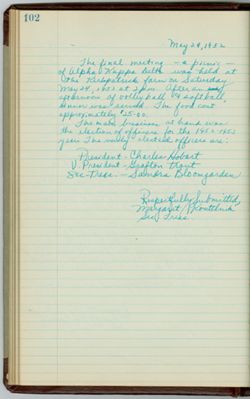 102
May 24, 1952
The final meeting - a picnic -
of Alpha Kappa Delta was held at
the Kirkpatrick farm on Saturday
May 24, 1952 at 2 p.m. After an
afternoon of volleyball & softball
dinner was served. The food cost
approximately $25.00.
The main business at hand was
the election of officers for the 1952-1953
year. The newly elected officers are:
President - Charles Hobart
V. President - Grafton Trout
Sec-Treas. - Sandra Bloomgarden
Respectfully Submitted,
Margaret
Sec. Treas.